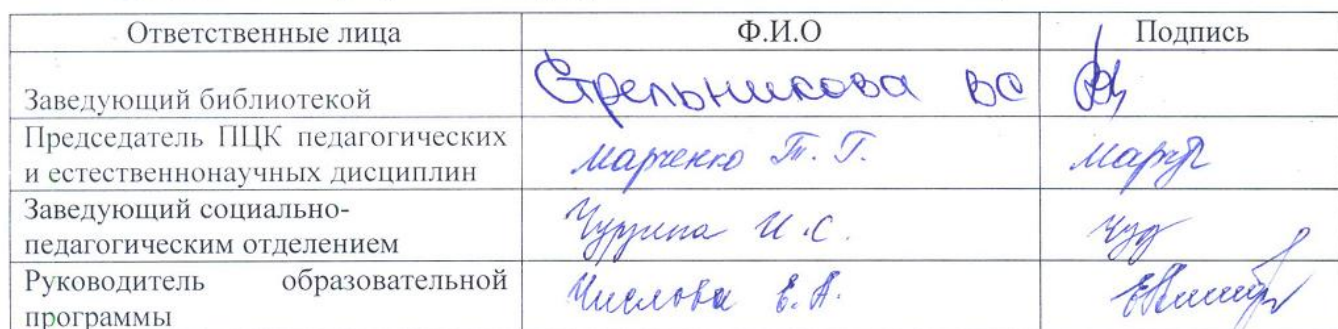 Ответственные лица Ф.И.О Подпись
Заведующий библиотекой Стрельникова ВС
Председатель ПЦК педагогических
и естественнонаучных дисциплин Марченко Т. Г.
Заведующий социально-
педагогическим отделением И.С.
Руководитель образовательной
программы Числова Е.А.